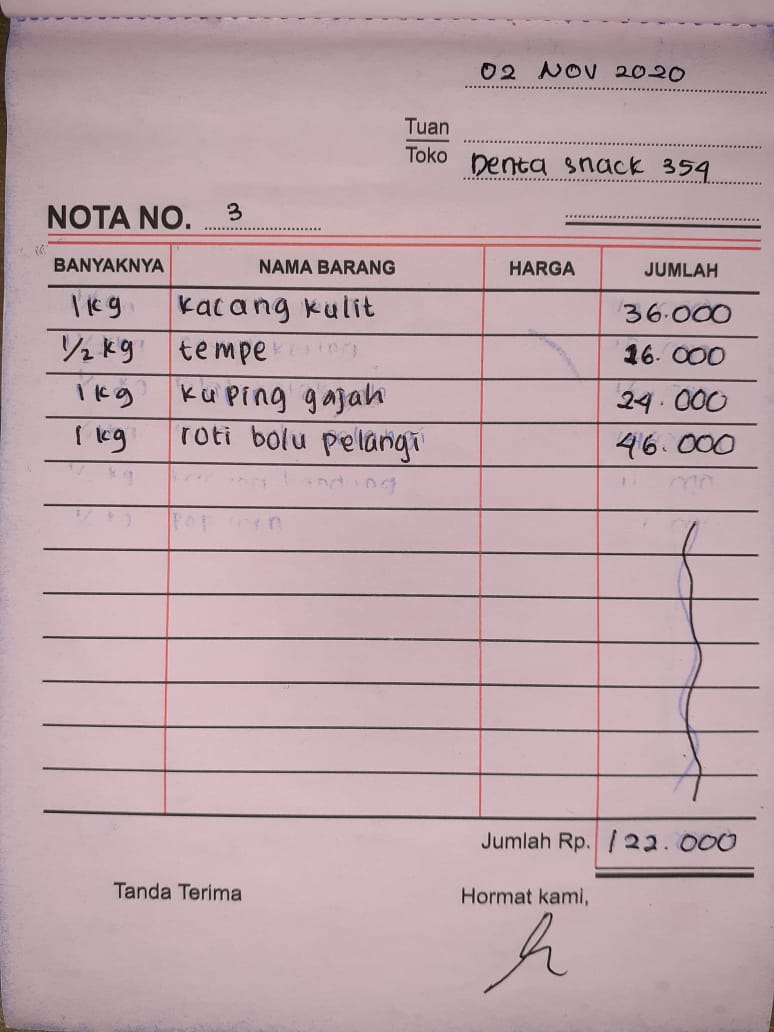 02 NOV 2020
Tuan
Toko Denta snack 354
NOTA NO. 3
BANYAKNYA NAMA BARANG HARGA JUMLAH
1 kg kacang kulit 36.000
1/2 kg tempe 16.000
1 kg kuping gajah 24.000
1 kg roti bolu pelangi 46.000
Jumlah Rp. 122.000
Tanda Terima Hormat kami,